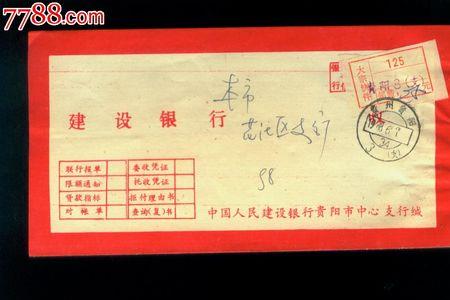 7788.com
125
本市
建设银行
支行
98
联行报单 委收凭证
限额通知 托收凭证
贷款指标 拒付理由书
对帐单 查询(复)书
贵州贵阳
中国人民建设银行贵阳市中心支行缄